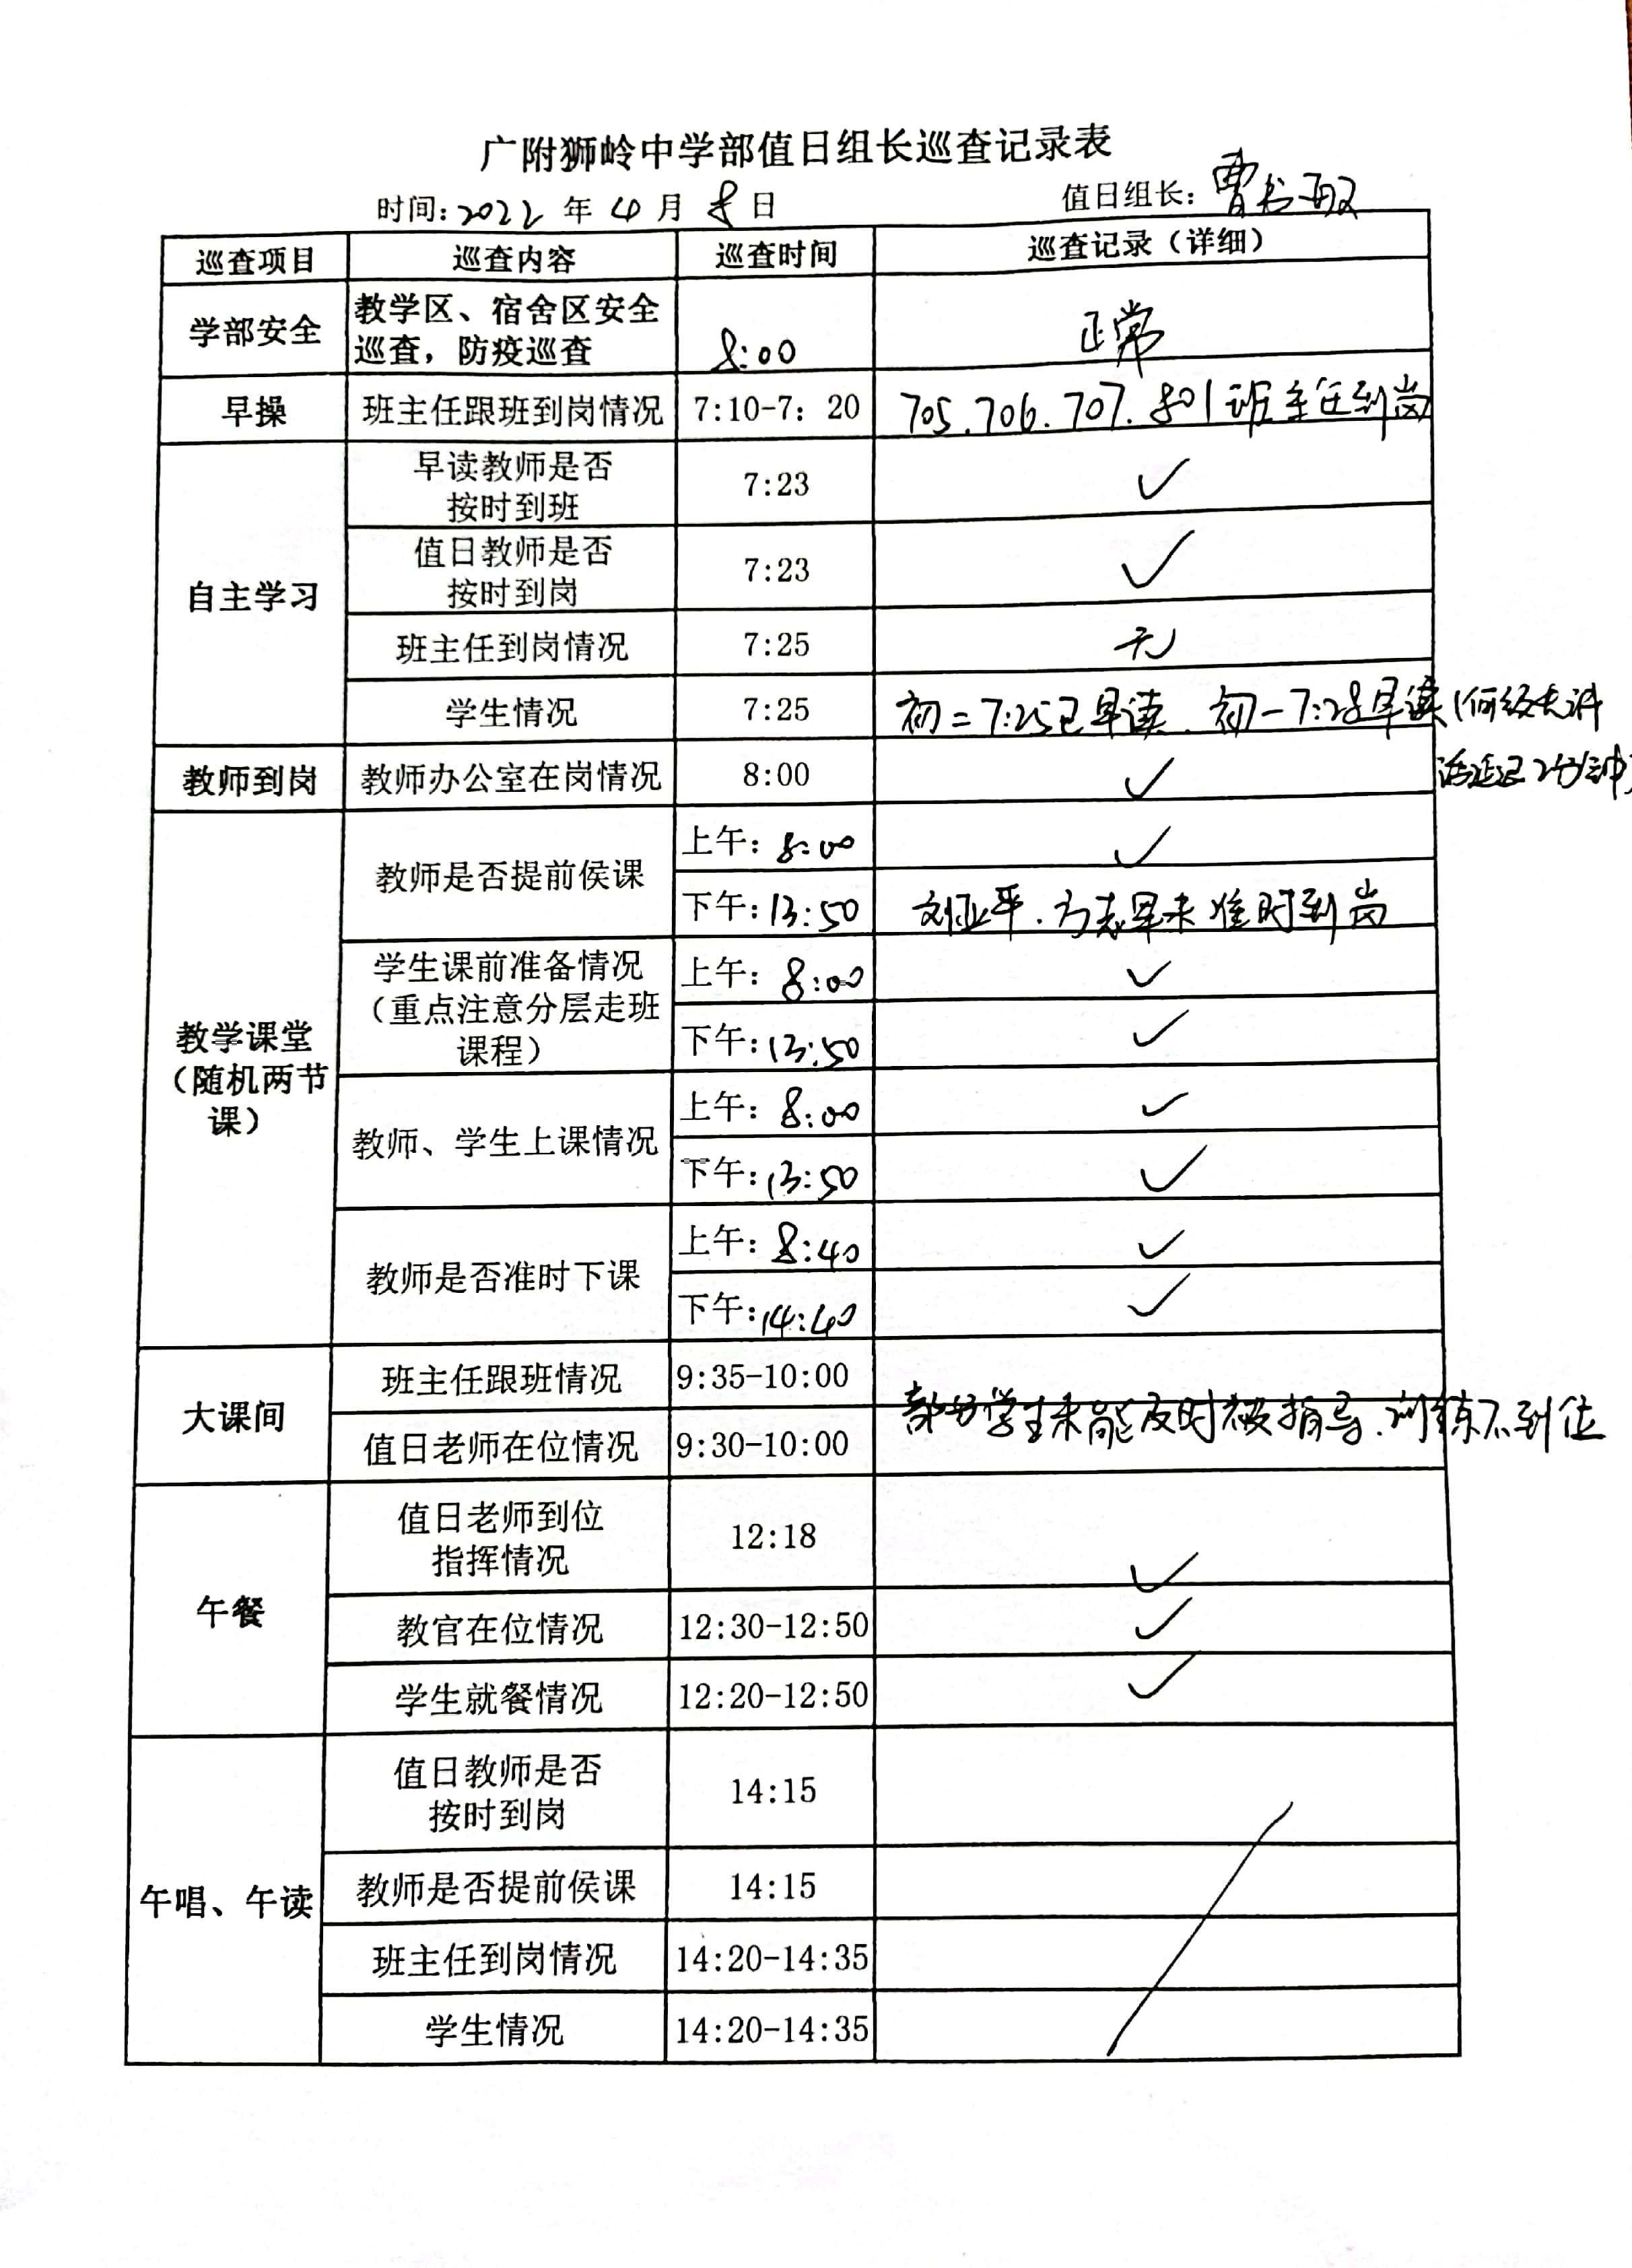 广附狮岭中学部值日组长巡查记录表
时间:2022年4月8日 值日组长:曹
巡查项目 巡查内容 巡查时间 巡查记录（详细）
学部安全 教学区、宿舍区安全
巡查，防疫巡查 8:00 正常
早操 班主任跟班到岗情况 7:10-7：20 705.706.707.801班主任到岗
自主学习 早读教师是否
按时到班 7:23 ✓
值日教师是否
按时到岗 7:23 ✓
班主任到岗情况 7:25 无
学生情况 7:25 初二7:25已早读.初一7:28早读(何校长讲
话延迟2分钟)
教师到岗 教师办公室在岗情况 8:00 ✓
教学课堂
（随机两节
课）
教师是否提前侯课 上午：8:00 ✓
下午：13:50 未准时到岗
学生课前准备情况
（重点注意分层走班
课程）
上午：8:00 ✓
下午：13:50 ✓
教师、学生上课情况 上午：8:00 ✓
下午：13:50 ✓
教师是否准时下课 上午：8:40 ✓
下午：14:40 ✓
大课间 班主任跟班情况 9:35-10:00
部分学生未能及时被指导.训练不到位
值日老师在位情况 9:30-10:00
午餐 值日老师到位
指挥情况 12:18 ✓
教官在位情况 12:30-12:50 ✓
学生就餐情况 12:20-12:50 ✓
午唱、午读 值日教师是否
按时到岗 14:15
教师是否提前侯课 14:15
班主任到岗情况 14:20-14:35
学生情况 14:20-14:35